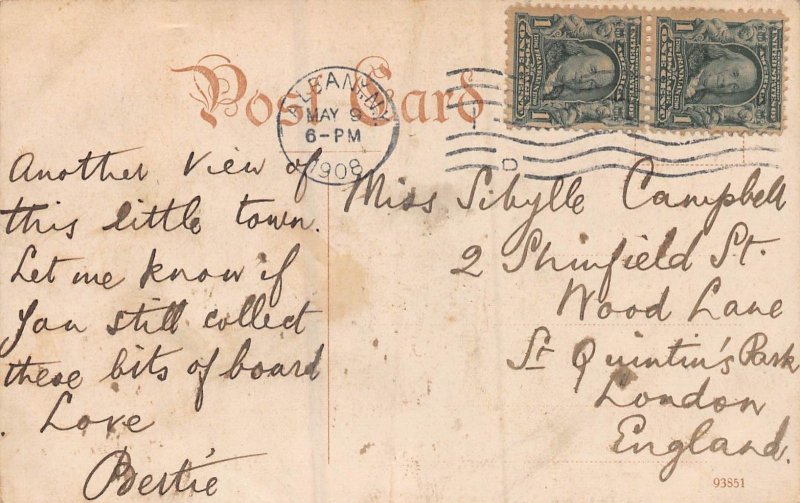 Post Card
ALBANY, N.Y.
MAY 9
6-PM
1908
D
1
1
Another view of
this little town.
Let me know if
you still collect
these bits of board
Love
Bertie
Miss Sibylle Campbell
2 Shinfield St.
Wood Lane
St Quintin's Park
London
England.
93851